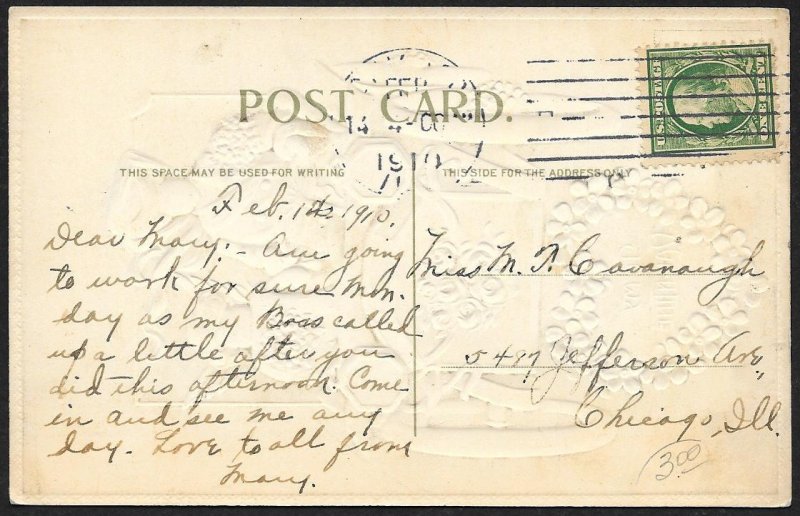 POST CARD.
THIS SPACE MAY BE USED FOR WRITING
THIS SIDE FOR THE ADDRESS ONLY
FEB
1910
U.S. POSTAGE
Feb. 1910.
Dear Mary: - Am going
to work for sure Mon-
day as my Boss called
up a little after you
did this afternoon. Come
in and see me any
day. Love to all from
Mary.
Miss M. T. Cavanaugh
5497 Jefferson Ave,
Chicago, Ill.
3.00